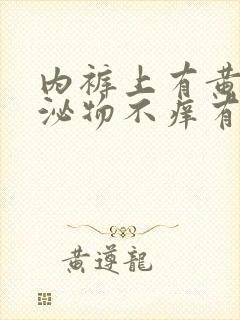 内裤上有黄
泌物不痒有
黄遵龍